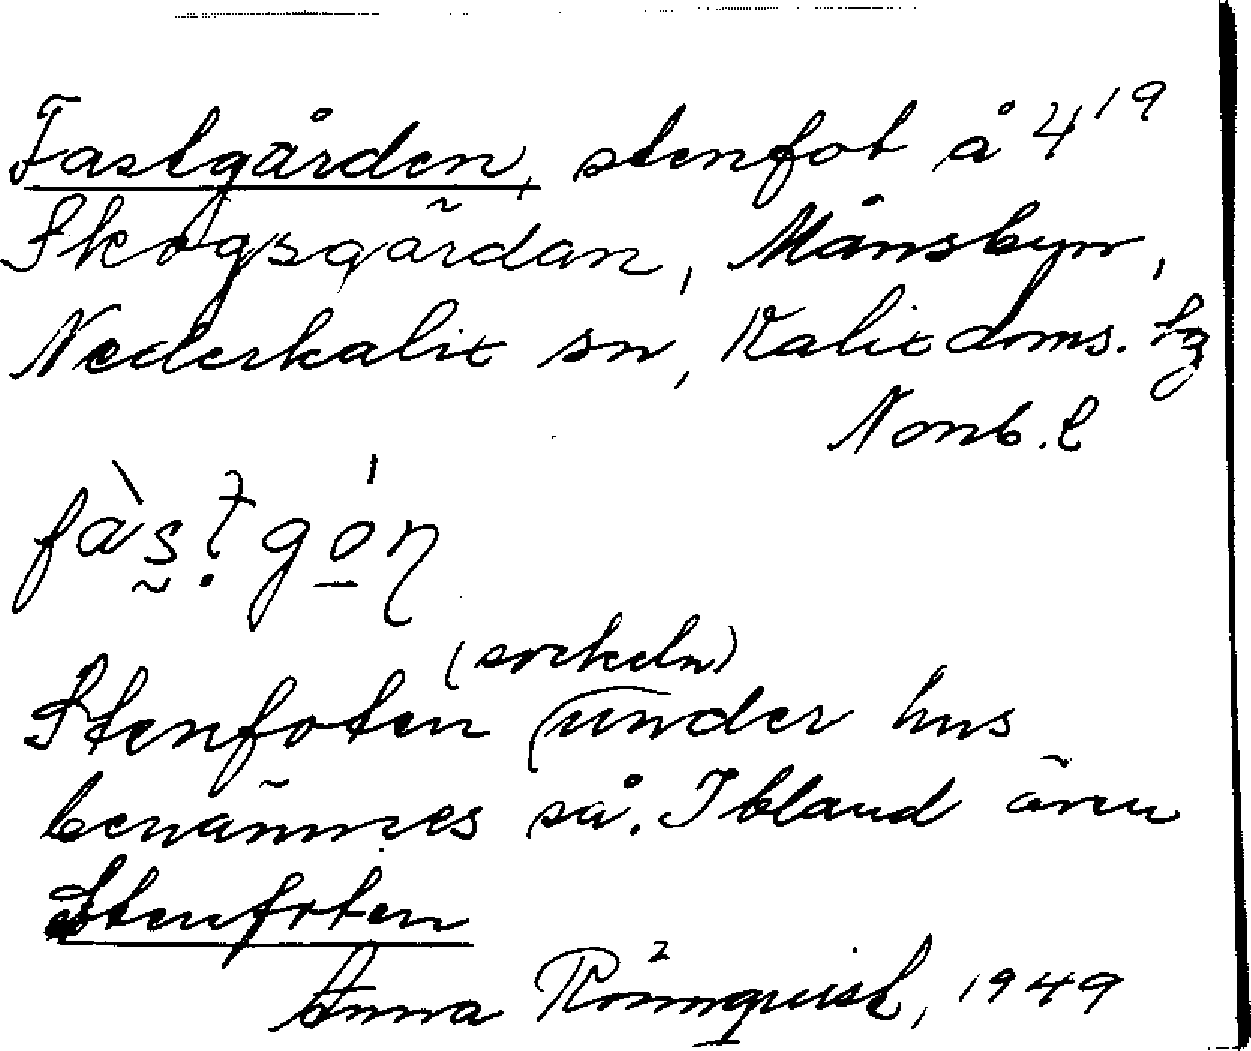 Fastgården, stenfot å 4¹⁹
Skogsgärdan, Månsbyn,
Nederkalix sn, Kalix doms. hg
Norrb. l
(sockeln)
Stenfoten under hus
benämnes så. Ibland även
Stenfoten
Anna Rönnquist, 1949